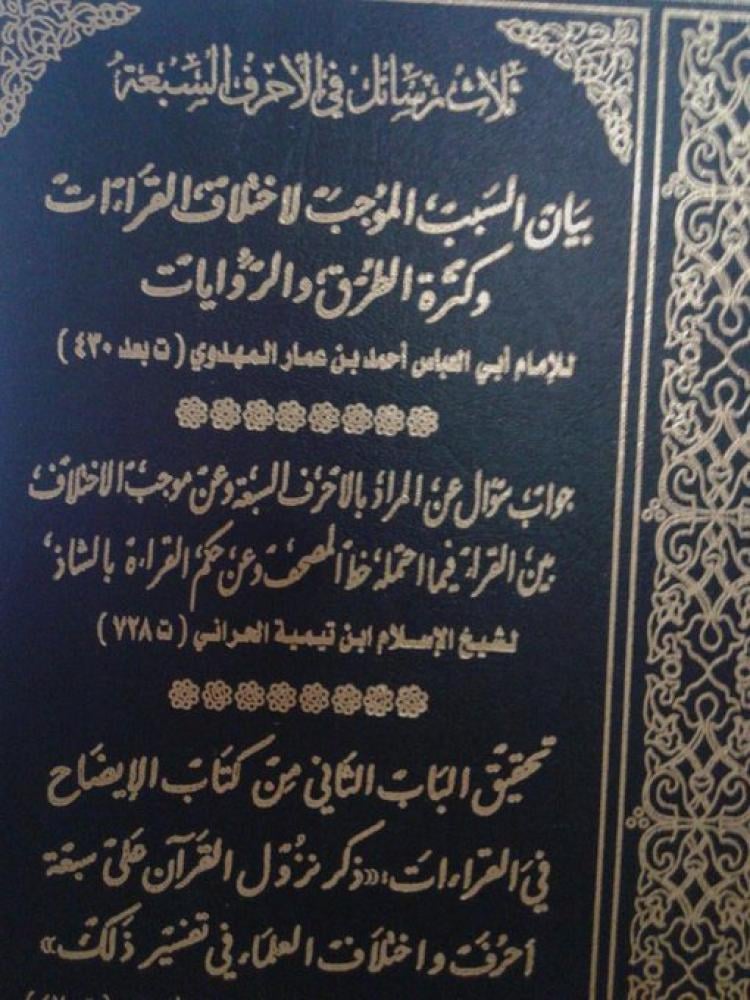 ثلاث رسائل في الأحرف السبعة
بيان السبب الموجب لاختلاف القراءات
وكثرة الطرق والروايات
للإمام أبي العباس أحمد بن عمار المهدوي ( ت بعد ٤٣٠ )
جواب سؤال عن المراد بالأحرف السبعة وعن موجب الاختلاف
بين القراء فيما احتمله خط المصحف وعن حكم القراءة بالشاذ
لشيخ الإسلام ابن تيمية الحراني ( ت ٧٢٨ )
تحقيق الباب الثاني من كتاب الإيضاح
في القراءات: «ذكر نزول القرآن على سبعة
أحرف واختلاف العلماء في تفسير ذلك»